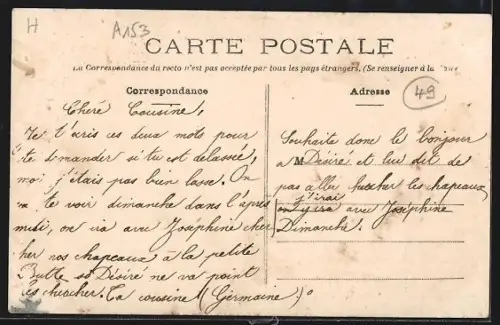 H
A153
CARTE POSTALE
La Correspondance du recto n'est pas acceptée par tous les pays étrangers. (Se renseigner à la
Correspondance
Adresse
49
Chère Cousine,
Je t'ecris ces deux mots pour
te demander si tu est delassée,
moi j'étais pas bien lasse. On
va te voir dimanche dans l'après
midi, on ira avec Joséphine cher
cher vos chapeaux à la petite
Butte so Désiré ne va point
les chercher. Ta cousine (Germaine)
Souhaite donc le bonjour
a M Désiré et lui dit de
pas aller chercher les chapeaux
j'irai
on y ira avec Joséphine
Dimanche.